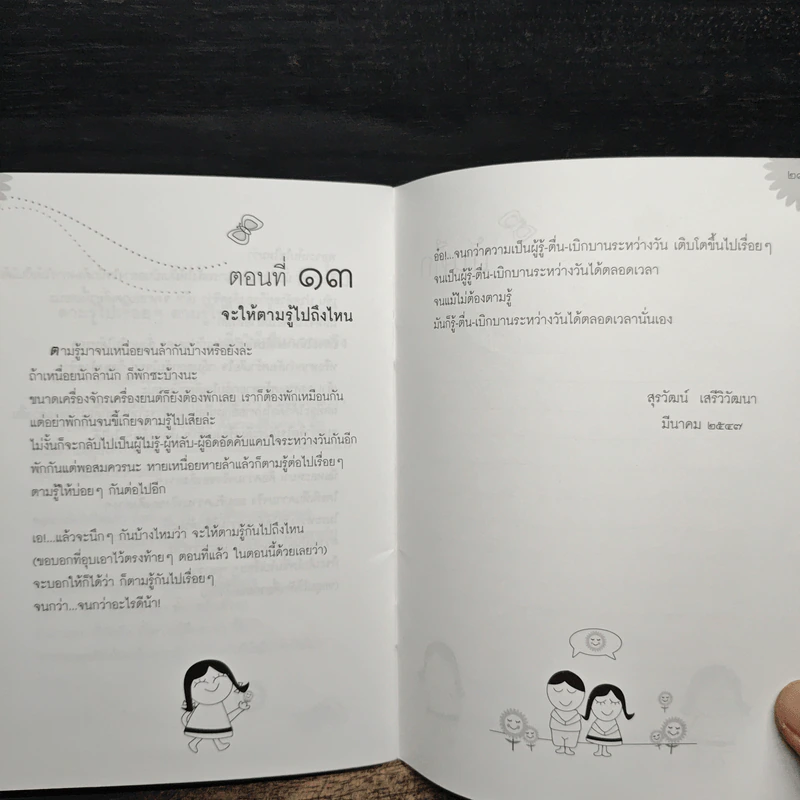 ตอนที่ ๑๓
จะให้ตามรู้ไปถึงไหน
ตามรู้มาจนเหนื่อยจนล้ากันบ้างหรือยังล่ะ
ถ้าเหนื่อยนักล้านัก ก็พักซะบ้างนะ
ขนาดเครื่องจักรเครื่องยนต์ก็ยังต้องพักเลย เราก็ต้องพักเหมือนกัน
แต่อย่าพักกันจนขี้เกียจตามรู้ไปเสียล่ะ
ไม่งั้นก็จะกลับไปเป็นผู้ไม่รู้-ผู้หลับ-ผู้อึดอัดคับแคบใจระหว่างวันกันอีก
พักกันแต่พอสมควรนะ หายเหนื่อยหายล้าแล้วก็ตามรู้ต่อไปเรื่อยๆ
ตามรู้ให้บ่อยๆ กันต่อไปอีก
เอ!...แล้วจะนึกๆ กันบ้างไหมว่า จะให้ตามรู้กันไปถึงไหน
(ขอบอกที่อุบเอาไว้ตรงท้ายๆ ตอนที่แล้ว ในตอนนี้ด้วยเลยว่า)
จะบอกให้ก็ได้ว่า ก็ตามรู้กันไปเรื่อยๆ
จนกว่า...จนกว่าอะไรดีน้า!
อ๋อ!...จนกว่าความเป็นผู้รู้-ตื่น-เบิกบานระหว่างวัน เติบโตขึ้นไปเรื่อยๆ
จนเป็นผู้รู้-ตื่น-เบิกบานระหว่างวันได้ตลอดเวลา
จนแม้ไม่ต้องตามรู้
มันก็รู้-ตื่น-เบิกบานระหว่างวันได้ตลอดเวลานั่นเอง
สุรวัฒน์ เสรีวิวัฒนา
มีนาคม ๒๕๔๗